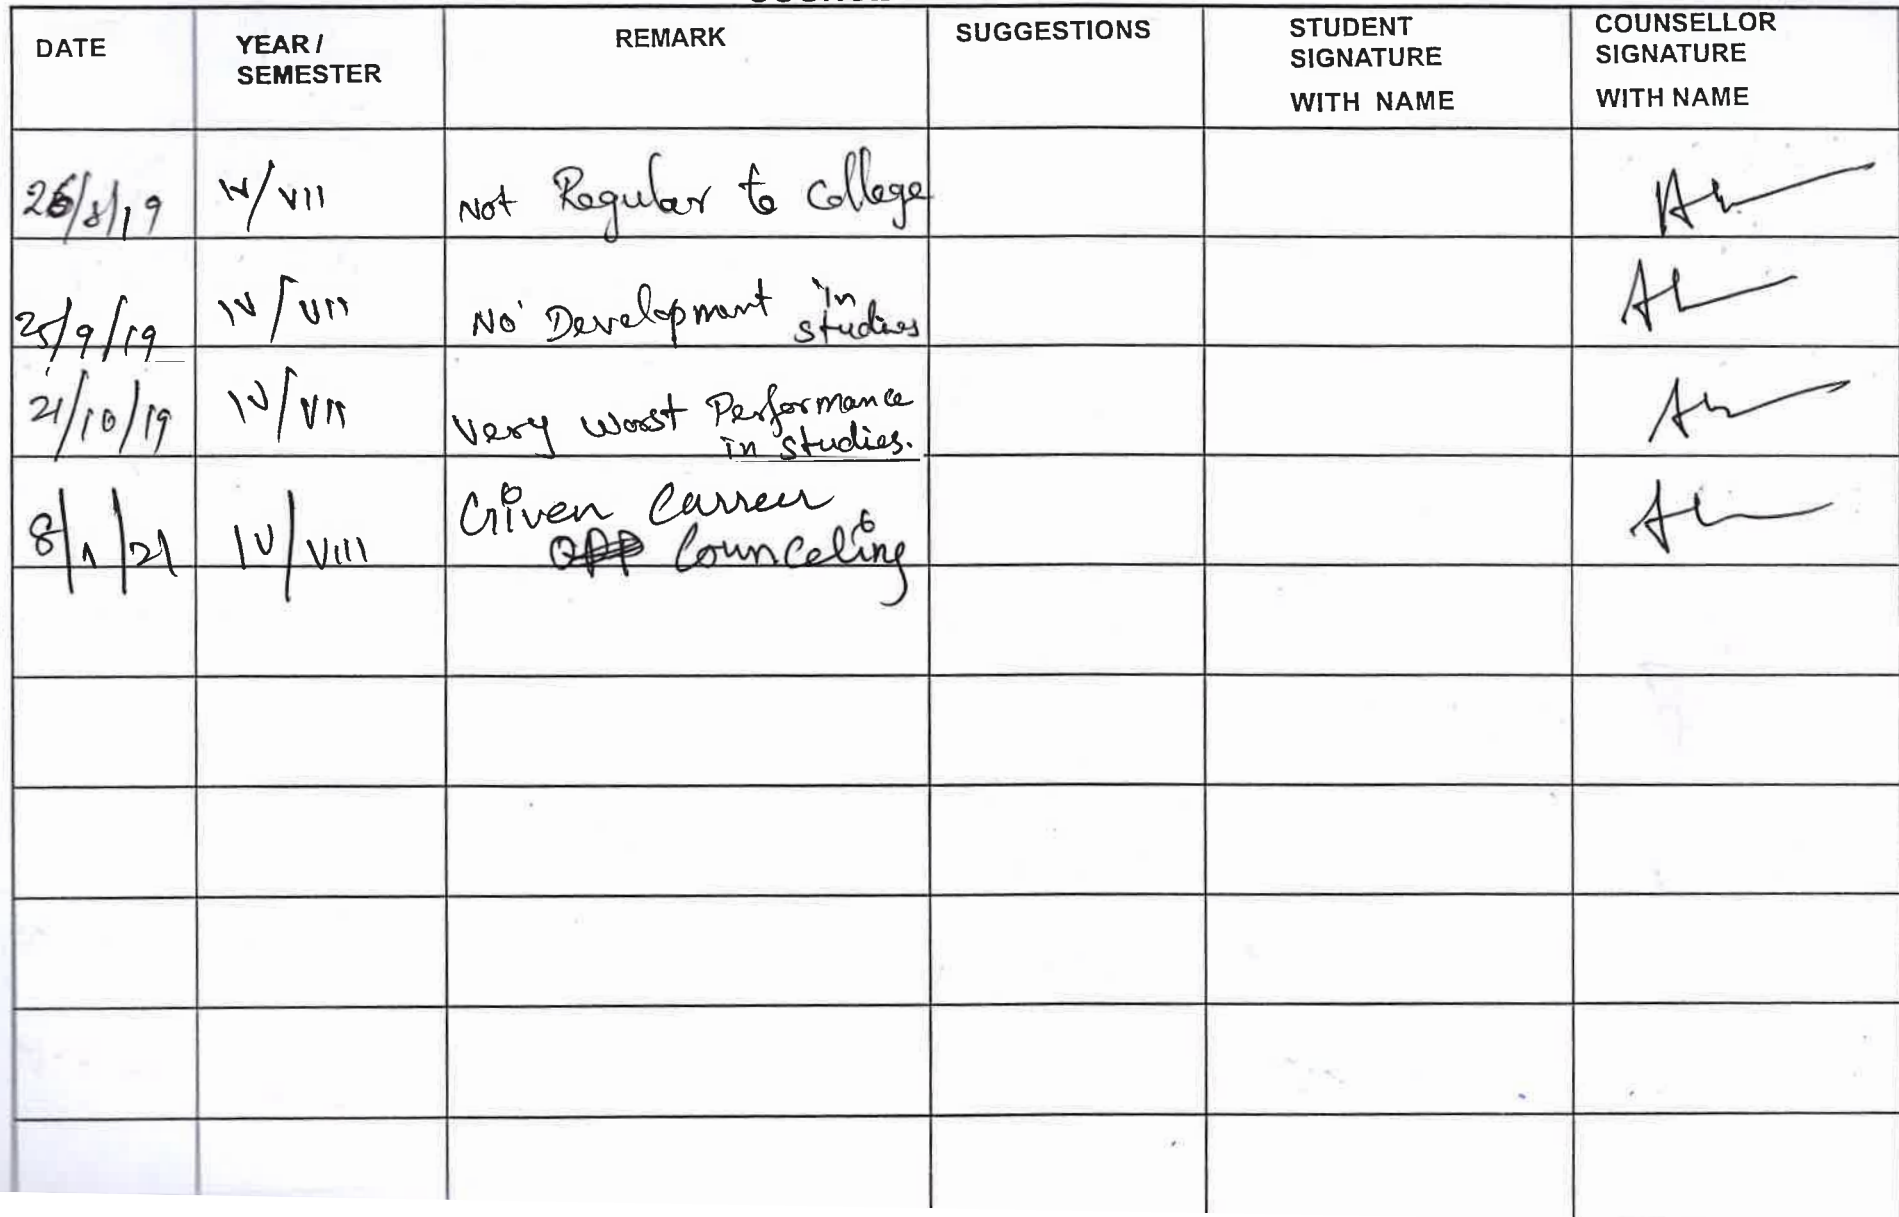 DATE
YEAR /
SEMESTER
REMARK
SUGGESTIONS
STUDENT
SIGNATURE
WITH NAME
COUNSELLOR
SIGNATURE
WITH NAME
26/8/19
IV/VII
Not Regular to College
25/9/19
IV/VII
No Development in
studies
21/10/19
IV/VII
Very worst Performance
in studies.
8/1/21
IV/VIII
Given Carreer
Counceling